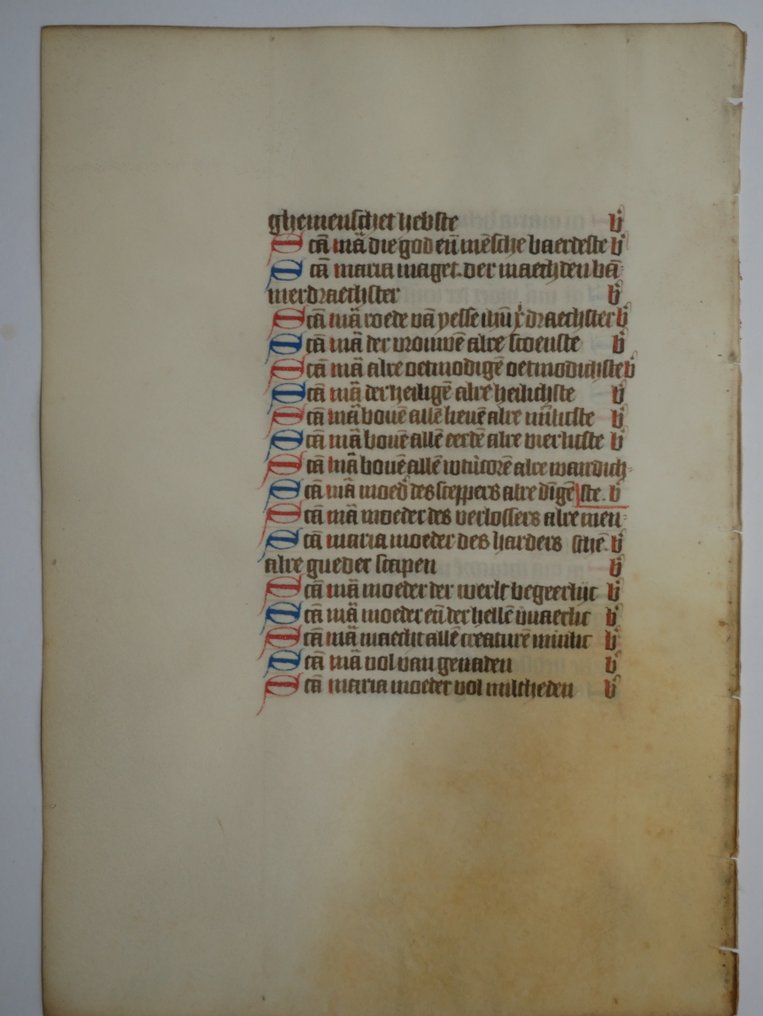 ghemenschet hebste b
Sca̅ ma̅ die god en̅ me̅sche baerdeste b
Sca̅ maria maget der maechden va̅
werdraechster b
Sca̅ ma̅ roede va̅ yesse draechster b
Sca̅ ma̅ der vrouwen alre scoenste b
Sca̅ ma̅ alre oetmodige̅ oetmodichste b
Sca̅ ma̅ der heilige̅ alre heilichste b
Sca̅ ma̅ boue̅ alle̅ lieue̅ alre b
Sca̅ ma̅ boue̅ alle̅ eerde̅ alre b
Sca̅ ma̅ boue̅ alle̅ alre waerdich-
Sca̅ ma̅ moed des sceppers alre ste. b
Sca̅ ma̅ moeder des verlossers alre men-
Sca̅ maria moeder des harders sche̅ b
alre gueder scapen b
Sca̅ ma̅ moeder der werlt begeerlijc b
Sca̅ ma̅ moeder en̅ der helle̅ b
Sca̅ ma̅ maecht alle̅ creature̅ b
Sca̅ ma̅ vol van genaden b
Sca̅ maria moeder vol miltheden b